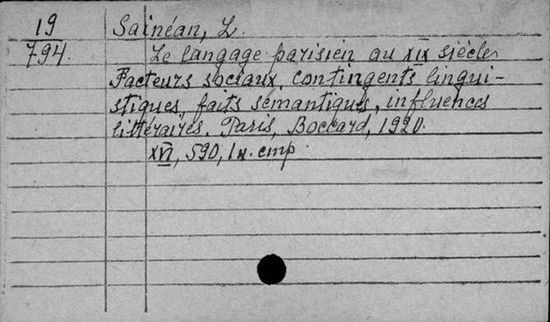 19
794.
Sainéan, L.
Le langage parisien au XIX siècle.
Facteurs sociaux, contingents lingui-
stiques, faits sémantiques, influences
littéraires. Paris, Boccard, 1920.
XVI, 590, 1 н. стр.